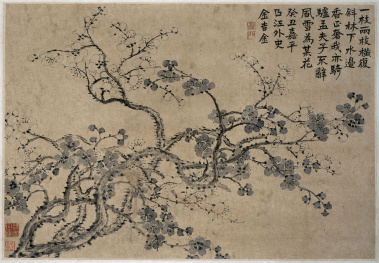 一枝兩枝橫復
斜林下水邊
香正奢我亦騎
驢孟夫子不辭
風雪為某花
癸丑嘉平
江外史
金吉金